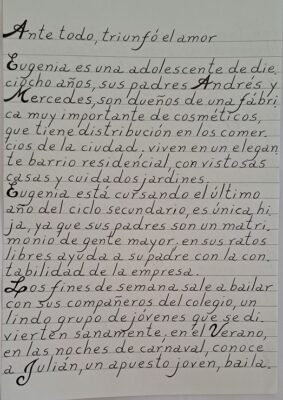 Ante todo, triunfó el amor
Eugenia es una adolescente de die,
ciocho años, sus padres Andrés y
Mercedes, son dueños de una fábri,
ca muy importante de cosméticos,
que tiene distribución en los comer,
cios de la ciudad. viven en un elegan,
te barrio residencial, con vistosas
casas y cuidados jardines.
Eugenia está cursando el último
año del ciclo secundario, es única hi,
ja, ya que sus padres son un matri,
monio de gente mayor, en sus ratos
libres ayuda a su padre con la con,
tabilidad de la empresa.
Los fines de semana sale a bailar
con sus compañeros del colegio, un
lindo grupo de jóvenes que se di,
vierten sanamente, en el Verano,
en las noches de carnaval, conoce
a Julián, un apuesto joven, baila,